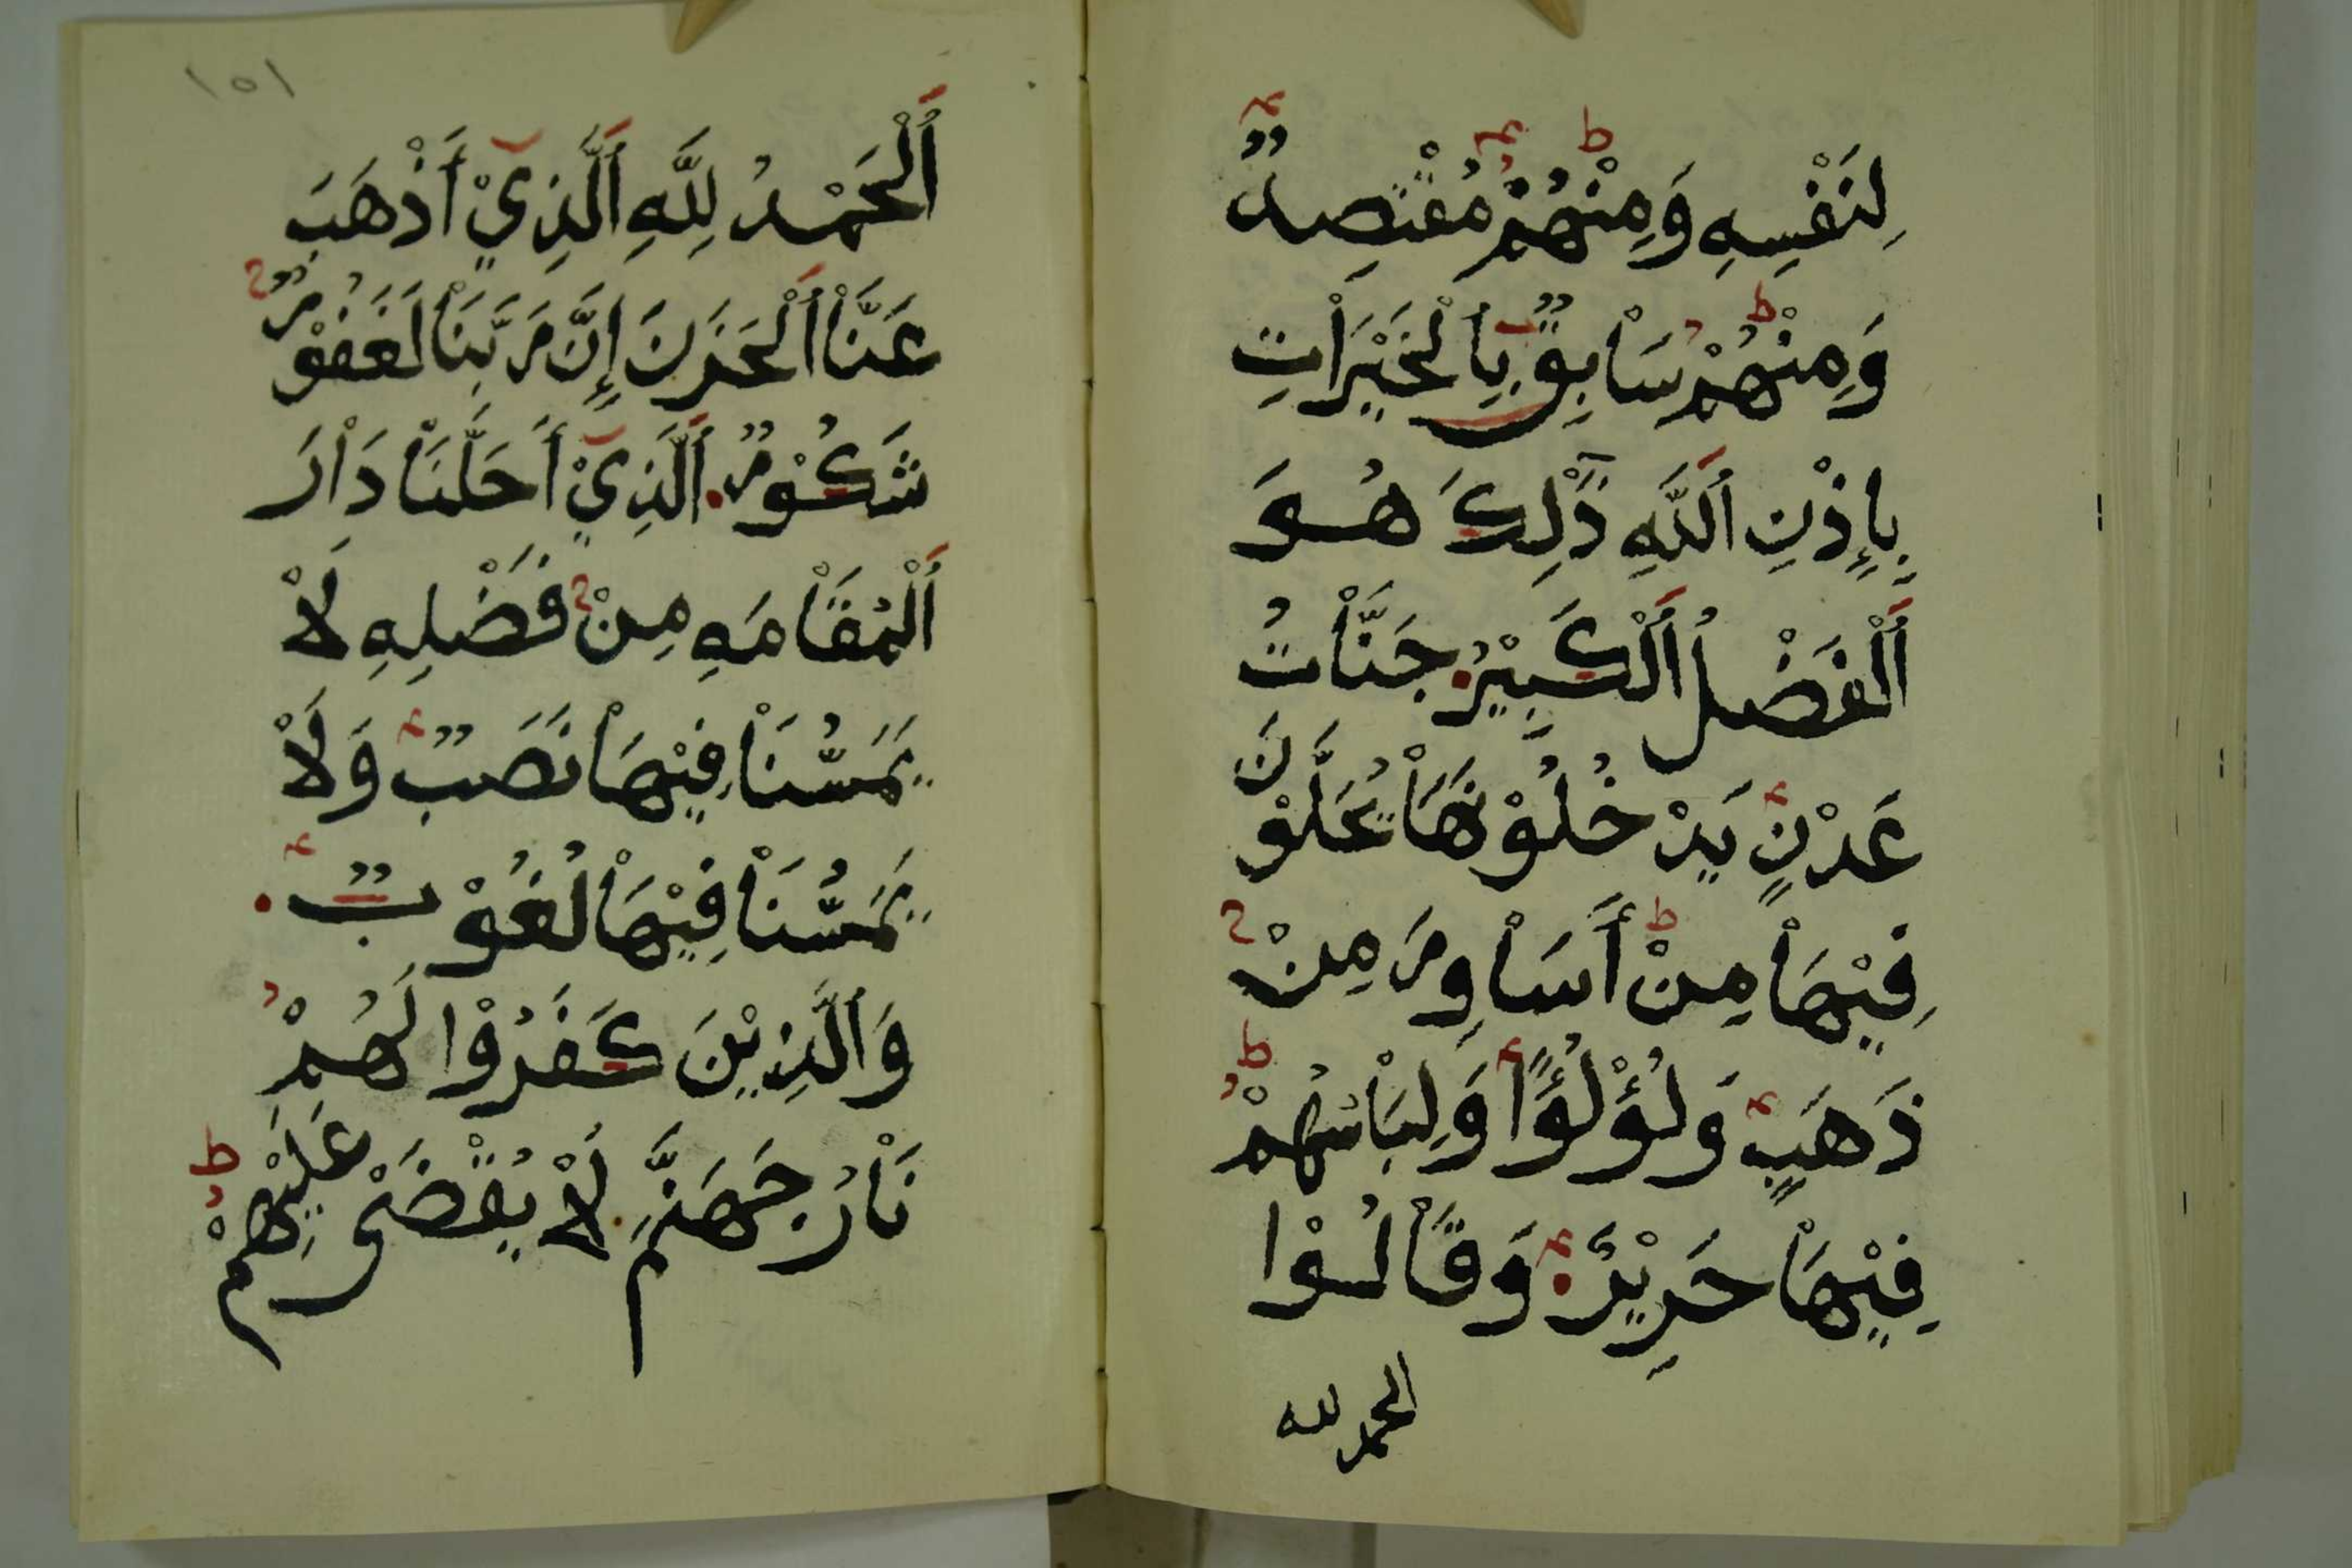 لِنَفْسِهِ وَمِنْهُمْ مُقْتَصِدٌ
وَمِنْهُمْ سَابِقٌ بِالْخَيْرَاتِ
بِإِذْنِ اللَّهِ ذَٰلِكَ هُوَ
الْفَضْلُ الْكَبِيْرُ جَنَّاتُ
عَدْنٍ يَدْخُلُوْنَهَا يُحَلَّوْنَ
فِيْهَا مِنْ أَسَاوِرَ مِنْ
ذَهَبٍ وَلُؤْلُؤًا وَلِبَاسُهُمْ
فِيْهَا حَرِيْرٌ وَقَالُوْا
الحمد لله
١٥١
اَلْحَمْدُ لِلَّهِ الَّذِيْ أَذْهَبَ
عَنَّا الْحَزَنَ إِنَّ رَبَّنَا لَغَفُوْرٌ
شَكُوْرٌ الَّذِيْ أَحَلَّنَا دَارَ
الْمُقَامَهِ مِنْ فَضْلِهِ لَا
يَمَسُّنَا فِيْهَا نَصَبٌ وَلَا
يَمَسُّنَا فِيْهَا لُغُوْبٌ
وَالَّذِيْنَ كَفَرُوْا لَهُمْ
نَارُ جَهَنَّمَ لَا يُقْضَىٰ عَلَيْهِمْ